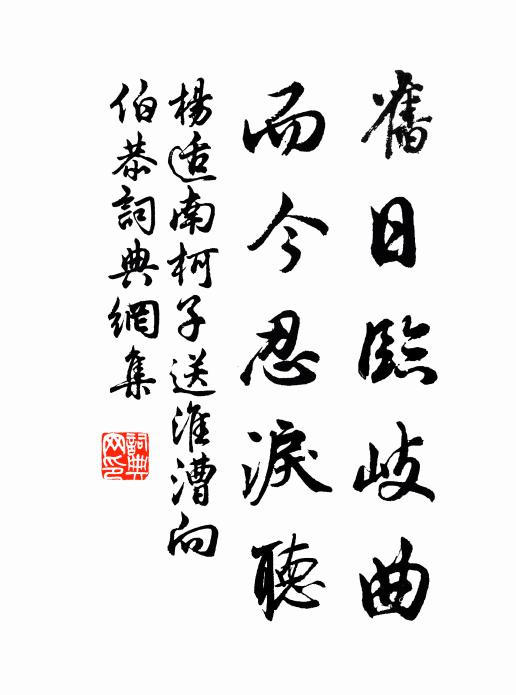 舊日臨岐曲
而今忍淚聽
楊适南柯子送淮漕向
伯恭詞典網集
詞典網印